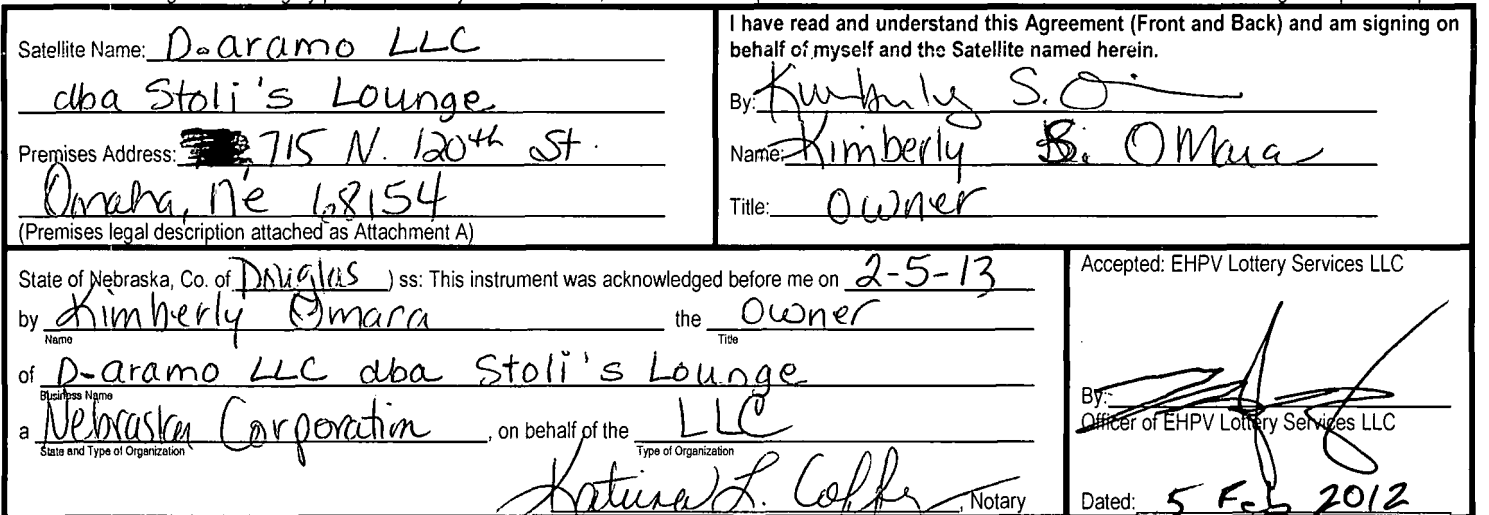 Satellite Name: D-aramo LLC
dba Stoli's Lounge
Premises Address: 715 N. 120th St.
Omaha, Ne 68154
(Premises legal description attached as Attachment A)
I have read and understand this Agreement (Front and Back) and am signing on
behalf of myself and the Satellite named herein.
By: Kimberly S.
Name: Kimberly S. OMara
Title: Owner
State of Nebraska, Co. of Douglas ) ss: This instrument was acknowledged before me on 2-5-13
by Kimberly Omara the Owner
Name Title
of D-aramo LLC dba Stoli's Lounge
Business Name
a Nebraska Corporation, on behalf of the LLC
State and Type of Organization Type of Organization
L. Notary
Accepted: EHPV Lottery Services LLC
By:
Officer of EHPV Lottery Services LLC
Dated: 5 Feb 2012